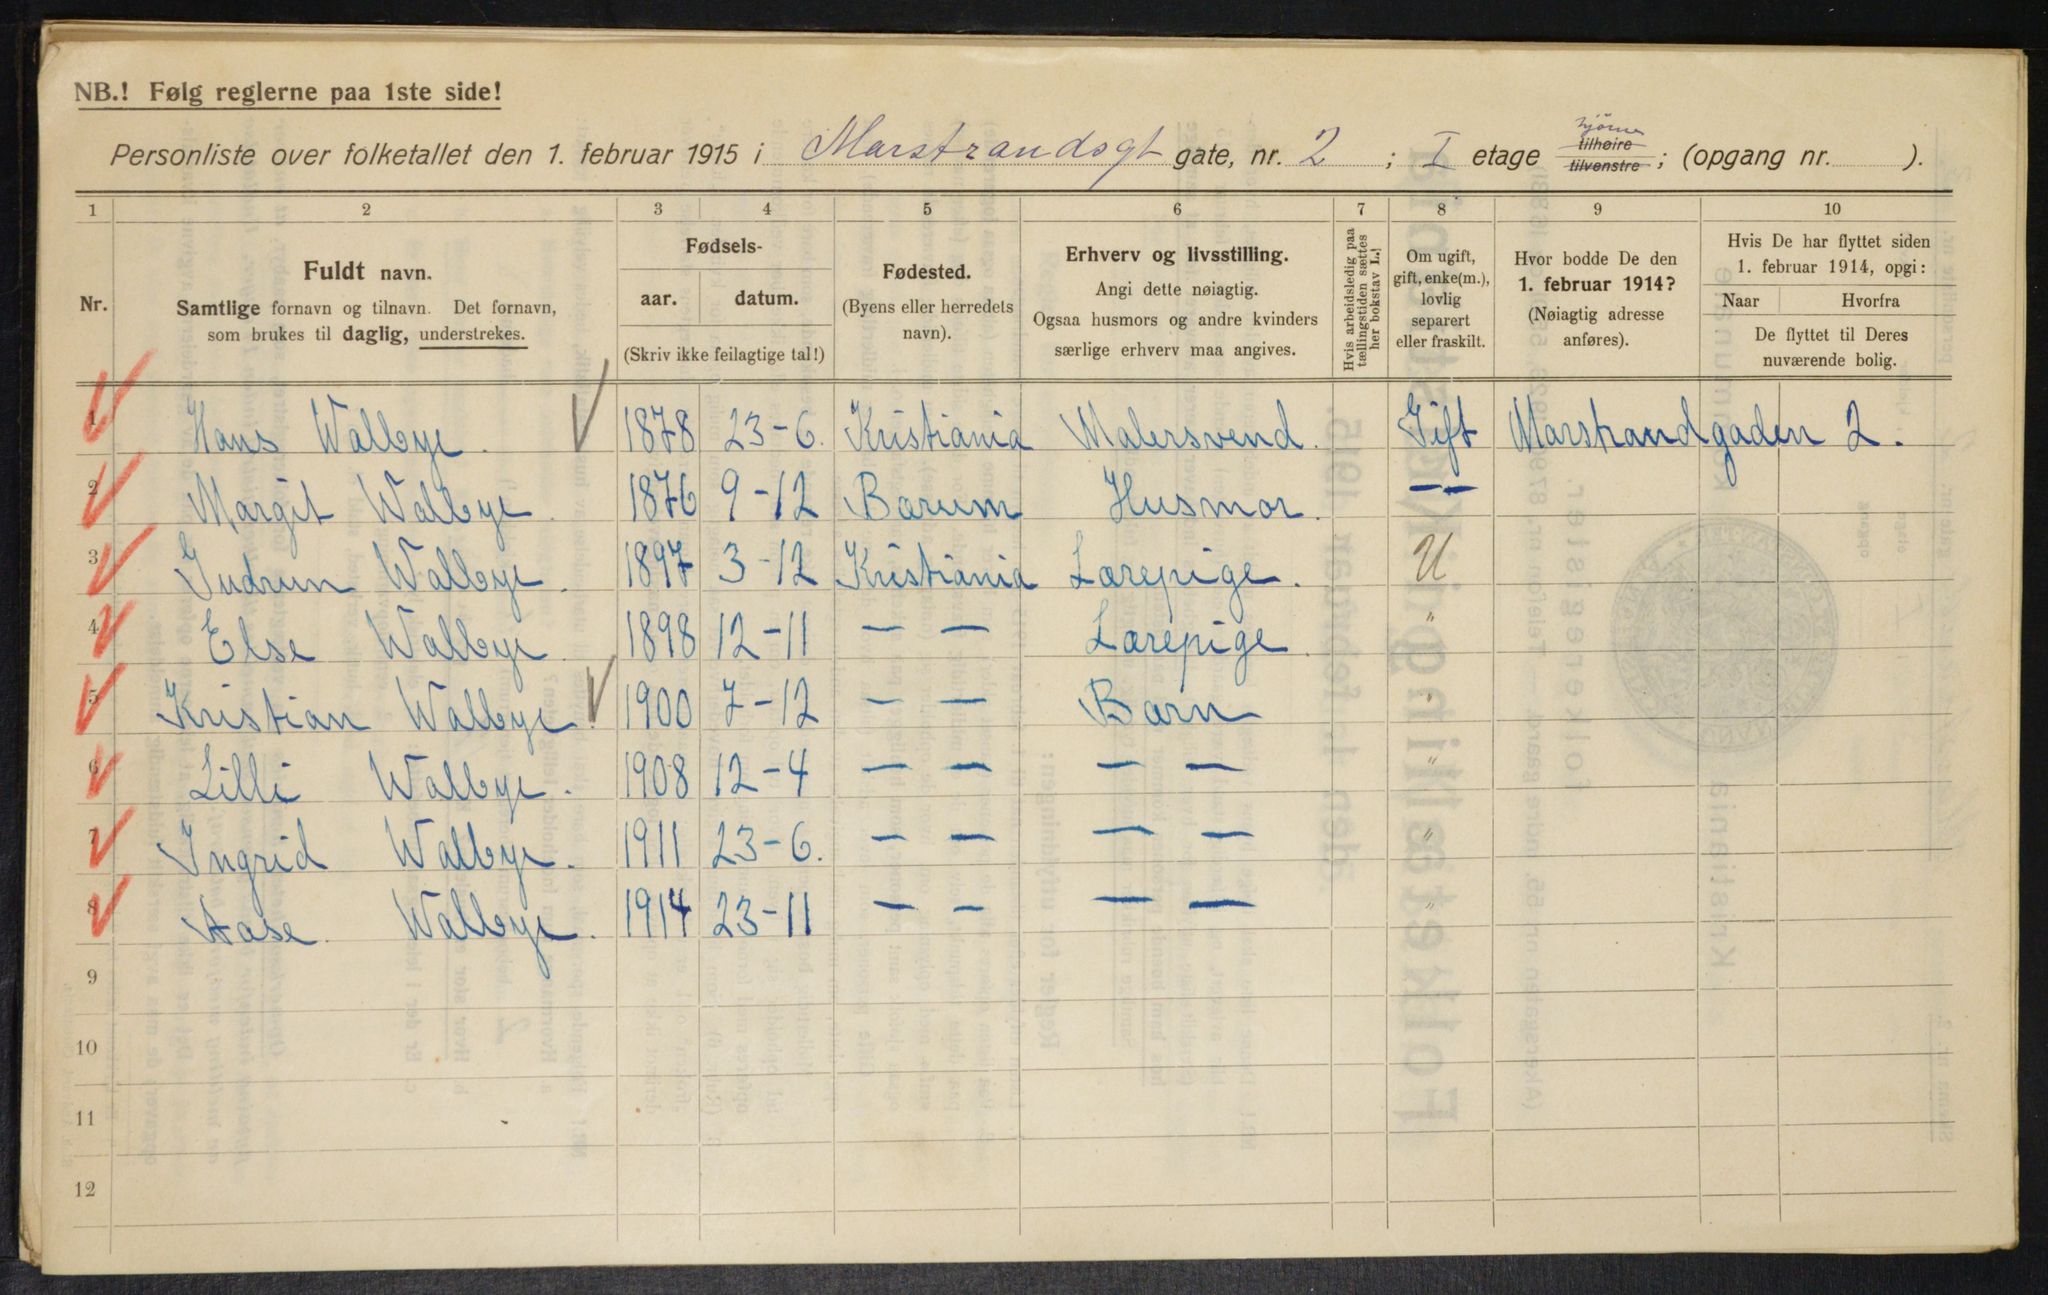 NB.! Følg reglerne paa 1ste side!
Personliste over folketallet den 1. februar 1915 i Marstrandsgt gate, nr. 2 ; I etage hjørne tilhøire tilvenstre ; (opgang nr. ).
1 2 3 4 5 6 7 8 9 10
Nr.
Fuldt navn.
Samtlige fornavn og tilnavn. Det fornavn,
som brukes til daglig, understrekes.
Fødsels-
aar. datum.
(Skriv ikke feilagtige tal!)
Fødested.
(Byens eller herredets
navn).
Erhverv og livsstilling.
Angi dette nøiagtig.
Ogsaa husmors og andre kvinders
særlige erhverv maa angives.
Hvis arbeidsledig paa
tællingstiden sættes
her bokstav L.!
Om ugift,
gift, enke(m.),
lovlig
separert
eller fraskilt.
Hvor bodde De den
1. februar 1914?
(Nøiagtig adresse
anføres).
Hvis De har flyttet siden
1. februar 1914, opgi:
Naar Hvorfra
De flyttet til Deres
nuværende bolig.
1 Hans Walbye. 1878 23-6. Kristiania Malersvend. Gift Marstrandgaden 2.
2 Margit Walbye. 1876 9-12 Barum Husmor. — —
3 Gudrun Walbye. 1897 3-12 Kristiania Lærepige. U
4 Else Walbye. 1898 12-11 — — Lærepige. "
5 Kristian Walbye. 1900 7-12 — — Barn "
6 Lilli Walbye. 1908 12-4 — — — — "
7 Ingrid Walbye. 1911 23-6. — — — — "
8 Aase. Walbye. 1914 23-11 — — — — "
9
10
11
12